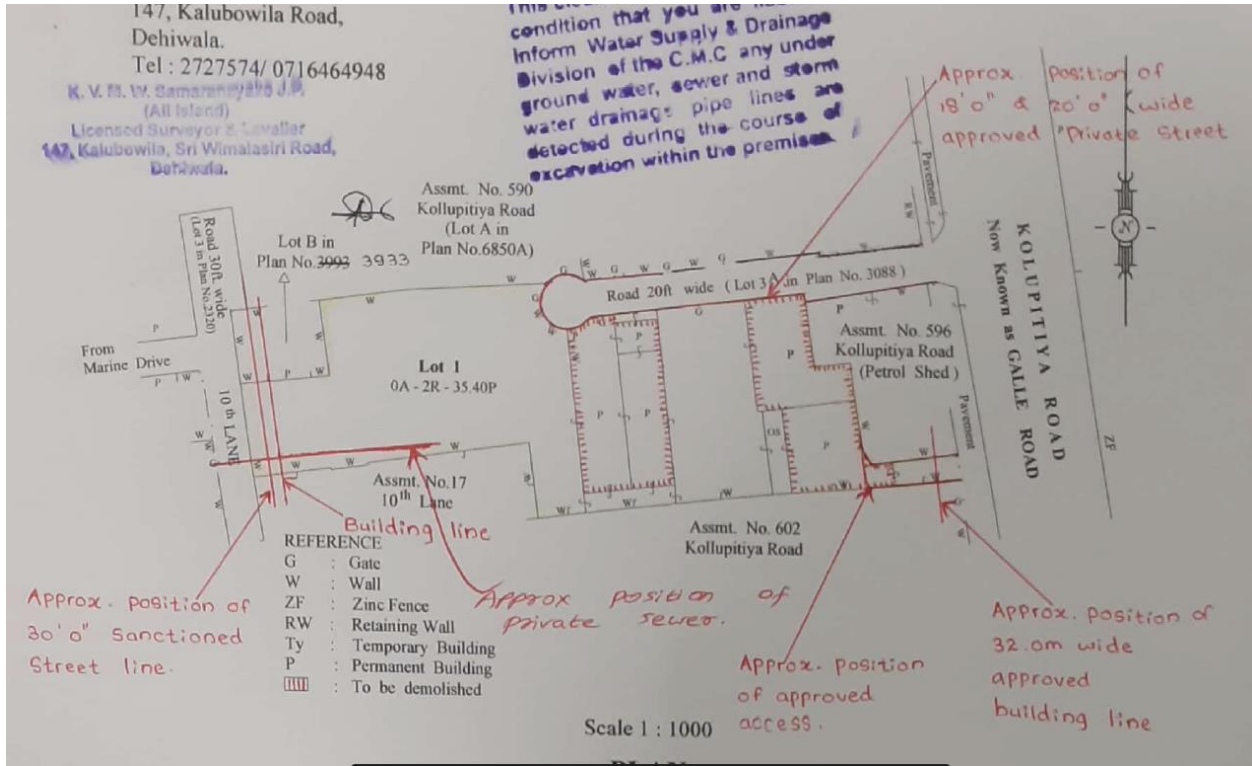 147, Kalubowila Road,
Dehiwala.
Tel : 2727574/ 0716464948
K. V. M. W. Samaranayake J.P.
(All Island)
Licensed Surveyor & Leveller
147, Kalubowila, Sri Wimalasiri Road,
Dehiwala.
condition that you are
Inform Water Supply & Drainage
Division of the C.M.C any under
ground water, sewer and storm
water drainage pipe lines are
detected during the course of
excavation within the premises
Approx. Position of
18'0" & 20'0" wide
approved Private Street
Assmt. No. 590
Kollupitiya Road
(Lot A in
Plan No.6850A)
Lot B in
Plan No.3993 3933
Road 30ft. wide
(Lot 3 in Plan No.2320)
Road 20ft wide ( Lot 3A in Plan No. 3088 )
Pavement
RW
KOLUPITIYA ROAD
Now Known as GALLE ROAD
From
Marine Drive
10 th LANE
Lot 1
0A - 2R - 35.40P
Assmt. No. 596
Kollupitiya Road
(Petrol Shed )
Pavement
ZF
GS
Assmt. No.17
10th Lane
Assmt. No. 602
Kollupitiya Road
Building line
REFERENCE
G : Gate
W : Wall
ZF : Zinc Fence
RW : Retaining Wall
Ty : Temporary Building
P : Permanent Building
: To be demolished
Approx. position of
30'0" Sanctioned
Street line.
Approx position of
private sewer.
Approx. position
of approved
access.
Approx. position of
32.0m wide
approved
building line
Scale 1 : 1000